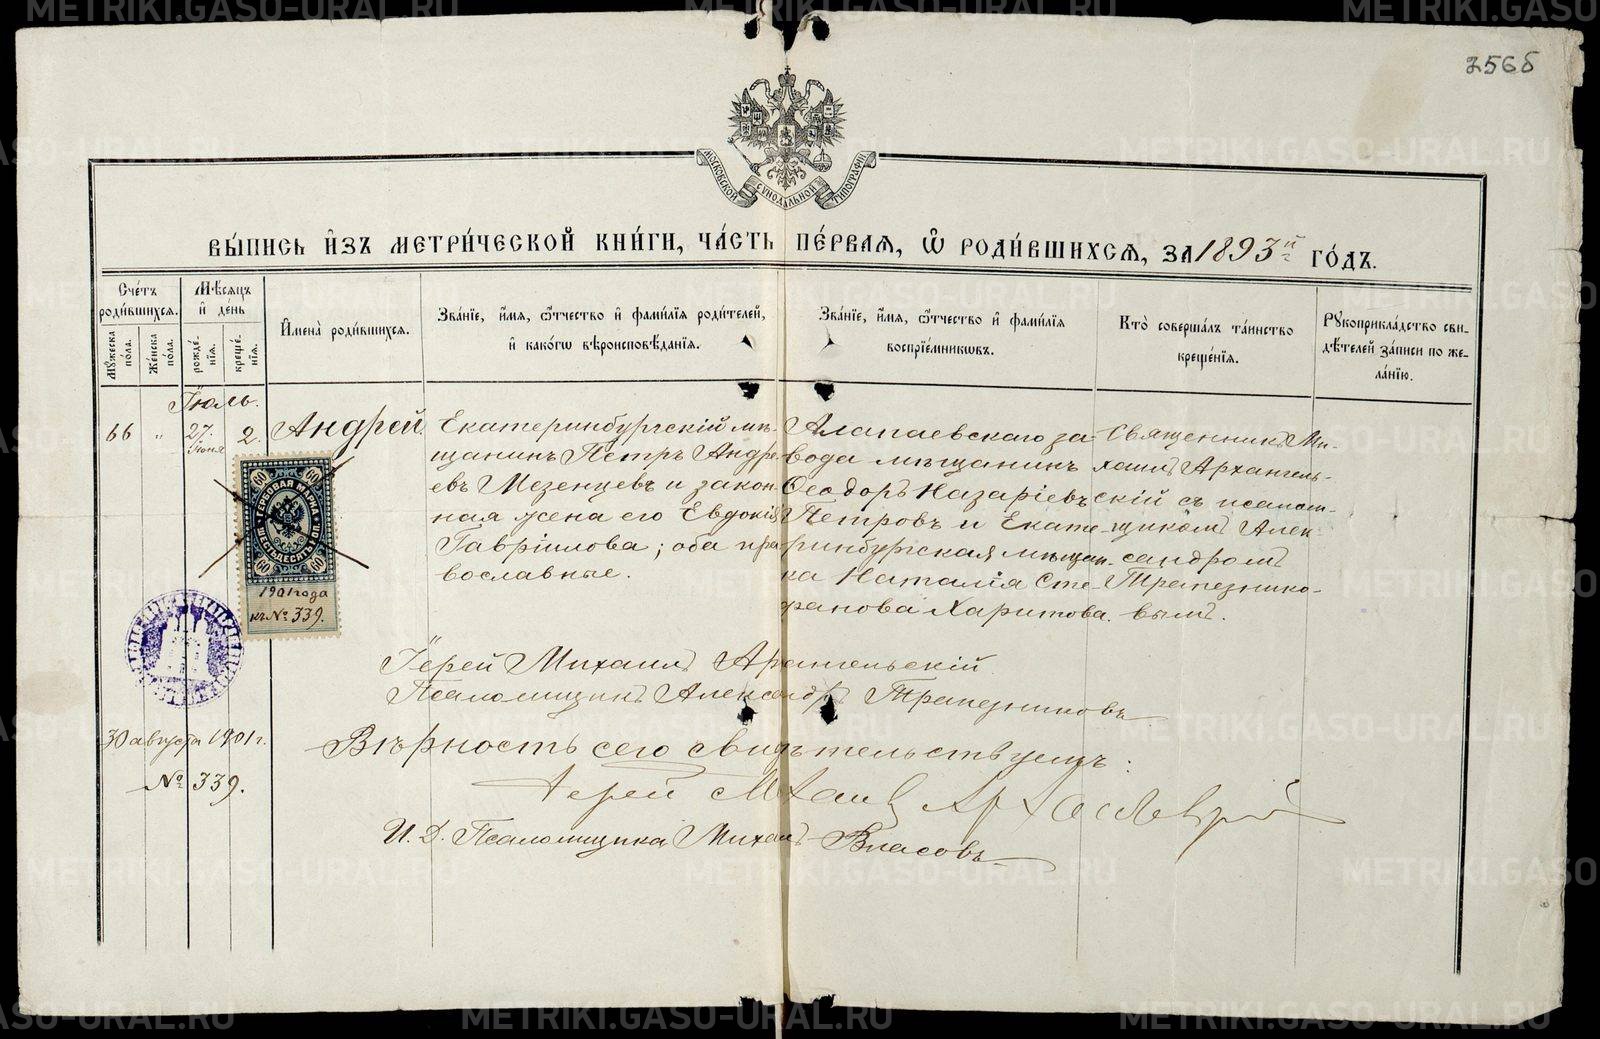 7566
МОСКОВСКОЙ СУНОДАЛЬНОЙ ТИПОГРАФІИ
ВЫ́ПИСЬ И҆ЗЪ МЕТРИ́ЧЕСКОЙ КНИ́ГИ, ЧА́СТЬ ПЕ́РВАѦ, Ѡ҆ РОДИ́ВШИХСѦ, ЗА 1893й ГО́ДЪ.
Сче́тъ роди́вшихсѧ.
Мꙋ́жеска по́ла.
Же́нска по́ла.
Мѣ́сѧцъ и҆ де́нь
рожде́нїѧ.
креще́нїѧ.
И҆мена̀ роди́вшихсѧ.
Зва́нїе, и҆́мѧ, ѻ҆́тчество и҆ фами́лїѧ роди́телей,
и҆ како́гѡ вѣроисповѣ́данїѧ.
Зва́нїе, и҆́мѧ, ѻ҆́тчество и҆ фами́лїѧ
воспрїе́мникѡвъ.
Кто̀ соверша́лъ та́инство
креще́нїѧ.
Рꙋкоприкла́дство сви-
дѣ́телей за́писи по же-
ла́нїю.
Іюль.
66 " 27. Іюня 2.
Андрей.
Екатеринбургскій мѣ-
щанинъ Петръ Андре-
евъ Мезенцевъ и закон-
ная жена его Евдокія
Гавріилова; оба пра-
вославные.
Алапаевскаго за-
вода мѣщанинъ
Ѳеодоръ Назаріевъ
Петровъ и Екате-
ринбургская мѣщан-
ка Наталія Сте-
фанова Харитова.
Священникъ Ми-
хаилъ Архангель-
скій съ псалом-
щикомъ Алек-
сандромъ
Трапезнико-
вымъ.
60 60
ГЕРБОВАЯ МАРКА
ШЕСТЬДЕСЯТЪ КОП.
60 60
1901 года
къ № 339.
Іерей Михаилъ Архангельскій
Псаломщикъ Александръ Трапезниковъ
30 августа 1901 г.
№ 339.
Вѣрность сего свидѣтельствуемъ:
Іерей Михаилъ Архангельскій
И. Д. Псаломщика Михаилъ Власовъ
METRIKI.GASO-URAL.RU